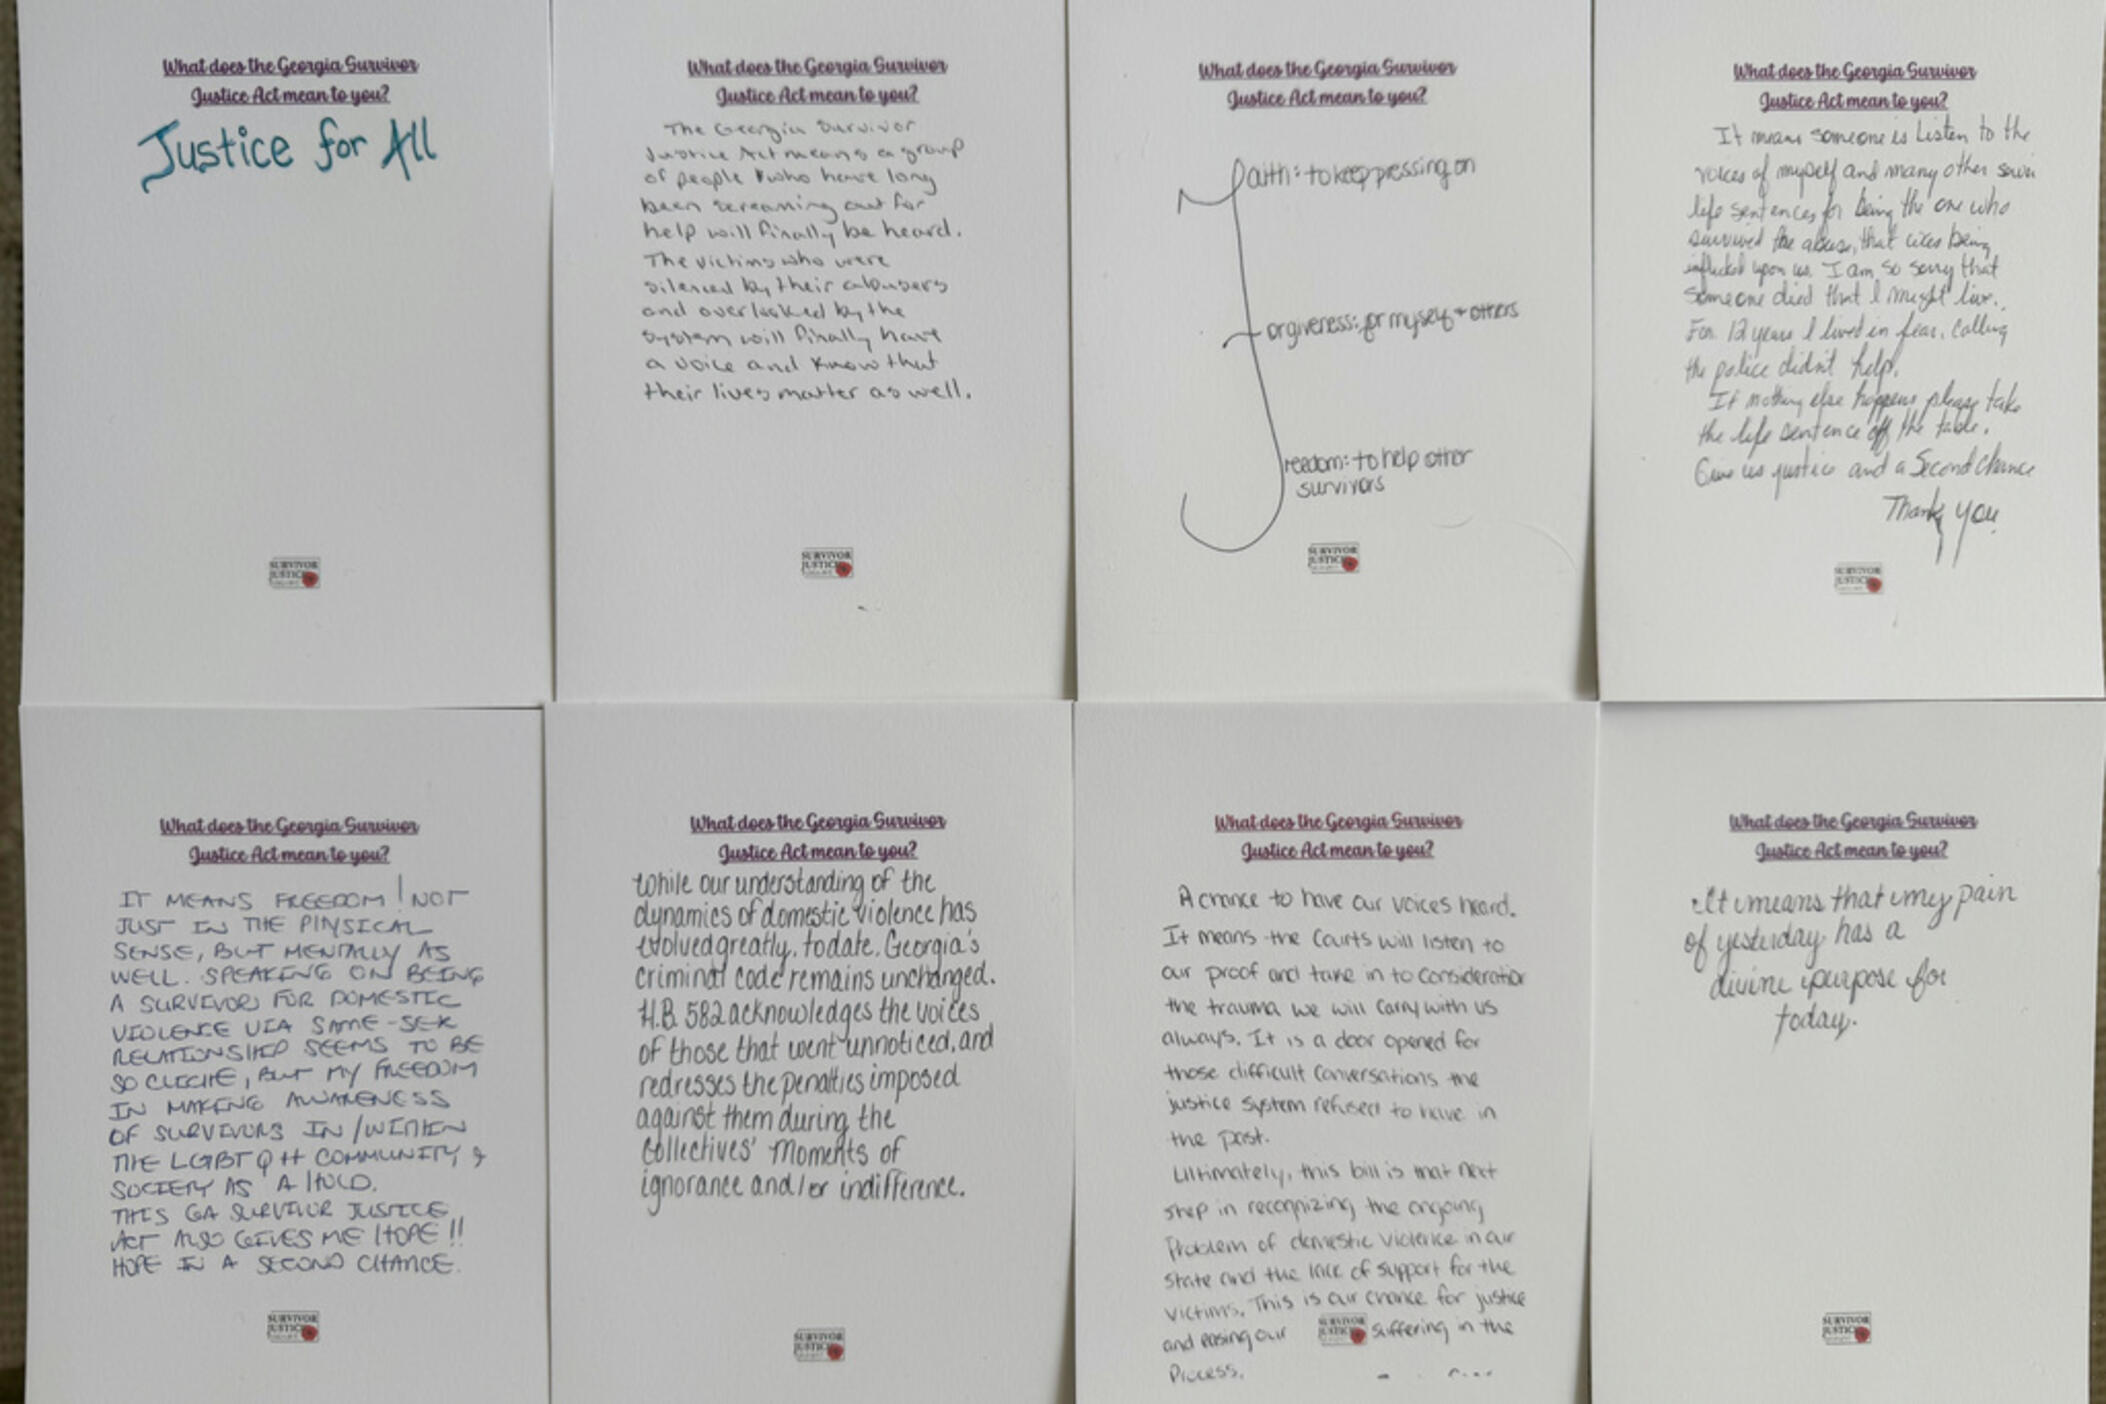 What does the Georgia Survivor
Justice Act mean to you?
Justice for All
SURVIVOR
JUSTICE
What does the Georgia Survivor
Justice Act mean to you?
The Georgia Survivor
Justice Act means a group
of people who have long
been screaming out for
help will finally be heard.
The victims who were
silenced by their abusers
and overlooked by the
system will finally have
a voice and know that
their lives matter as well.
SURVIVOR
JUSTICE
What does the Georgia Survivor
Justice Act mean to you?
Faith: to keep pressing on
Forgiveness: for myself + others
Freedom: to help other
survivors
SURVIVOR
JUSTICE
What does the Georgia Survivor
Justice Act mean to you?
It means someone is Listen to the
voices of myself and many other
life sentences for being the one who
survived the abuse, that being
inflicted upon us. I am so sorry that
someone died that I might live.
For 12 years I lived in fear. Calling
the police didn't help.
If nothing else happens please take
the life sentence off the table.
Give us justice and a Second Chance
Thank you
SURVIVOR
JUSTICE
What does the Georgia Survivor
Justice Act mean to you?
IT MEANS FREEDOM! NOT
JUST IN THE PHYSICAL
SENSE, BUT MENTALLY AS
WELL. SPEAKING ON BEING
A SURVIVOR FOR DOMESTIC
VIOLENCE VIA SAME-SEX
RELATIONSHIP SEEMS TO BE
SO CLICHE, BUT MY FREEDOM
IN MAKING AWARENESS
OF SURVIVORS IN/WITHIN
THE LGBTQ++ COMMUNITY &
SOCIETY AS A
THIS GA SURVIVOR JUSTICE
ACT ALSO GIVES ME HOPE!!
HOPE IN A SECOND CHANCE.
SURVIVOR
JUSTICE
What does the Georgia Survivor
Justice Act mean to you?
While our understanding of the
dynamics of domestic violence has
evolved greatly, to date, Georgia's
criminal code remains unchanged.
H.B. 582 acknowledges the voices
of those that went unnoticed, and
redresses the penalties imposed
against them during the
Collectives' moments of
ignorance and/or indifference.
SURVIVOR
JUSTICE
What does the Georgia Survivor
Justice Act mean to you?
A chance to have our voices heard.
It means the Courts will listen to
our proof and take in to consideration
the trauma we will carry with us
always. It is a door opened for
those difficult conversations the
justice system refused to have in
the past.
Ultimately, this bill is that next
step in recognizing the ongoing
Problem of domestic violence in our
state and the lack of support for the
victims. This is our chance for justice
and easing our suffering in the
Process.
SURVIVOR
JUSTICE
What does the Georgia Survivor
Justice Act mean to you?
It means that my pain
of yesterday has a
divine purpose for
today.
SURVIVOR
JUSTICE